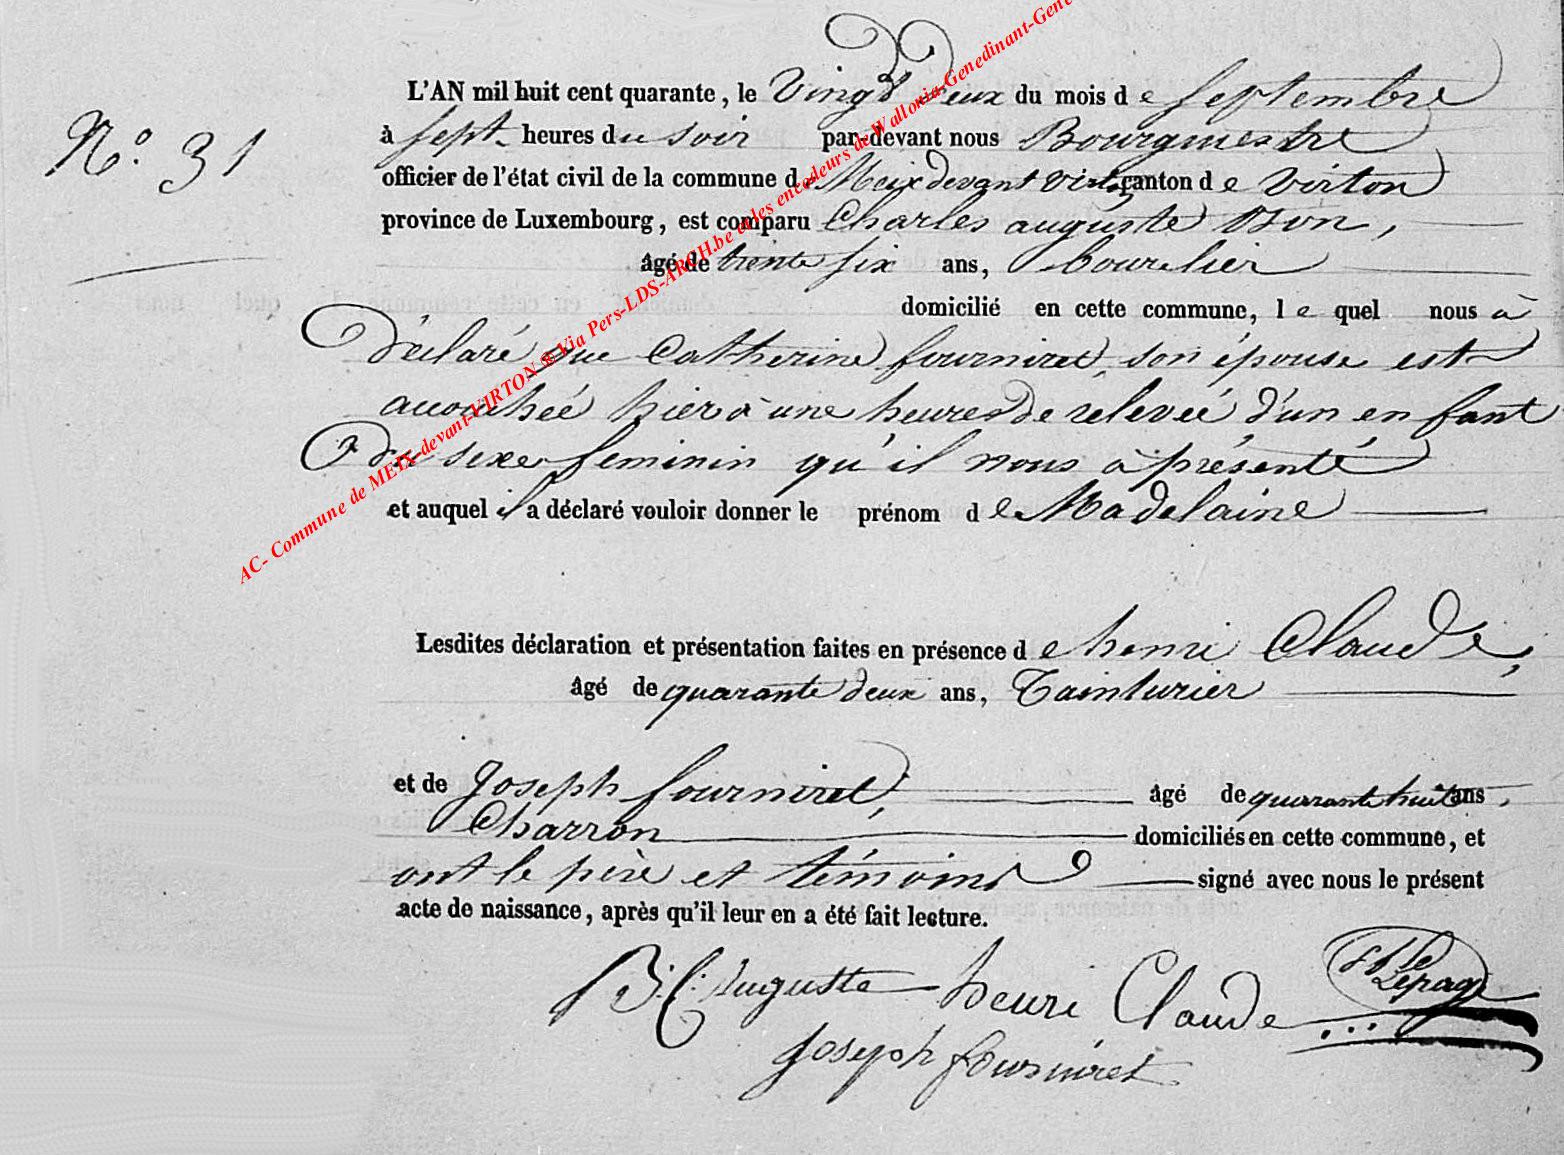 L'AN mil huit cent quarante, le vingt deux du mois de Septembre
N.° 31
à sept heures du soir par-devant nous Bourgmestre
officier de l'état civil de la commune de Meix devant Virton canton de Virton
province de Luxembourg, est comparu Charles auguste
âgé de trente six ans, bourelier
domicilié en cette commune, lequel nous à
déclaré que Catherine fourniret, son épouse est
accouchée hier à une heures de relevée d'un enfant
du sexe feminin qu'il nous à présenté
et auquel il a déclaré vouloir donner le prénom de Madelaine
Lesdites déclaration et présentation faites en présence de henri Claude,
âgé de quarante deux ans, Tainturier
et de Joseph fourniret, âgé de quarante huit ans,
Charron domiciliés en cette commune, et
ont le père et témoins signé avec nous le présent
acte de naissance, après qu'il leur en a été fait lecture.
Auguste henri Claude Lepage
Joseph fourniret
AC- Commune de MEIX-devant-VIRTON ® Via Pers-LDS-ARCH.be et les encodeurs de Wallonia-Genedinant-Gene